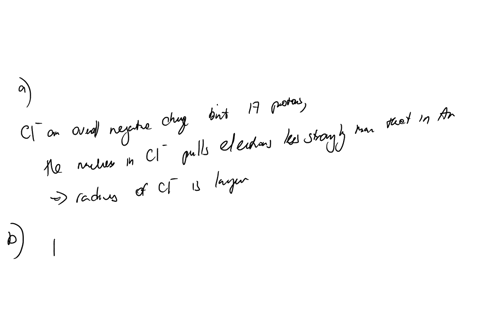 a)
Cl⁻ an overall negative charge but 17 protons,
the nucleus in Cl⁻ pulls electrons less strongly than that in Ar
⇒ radius of Cl⁻ is larger
b) |